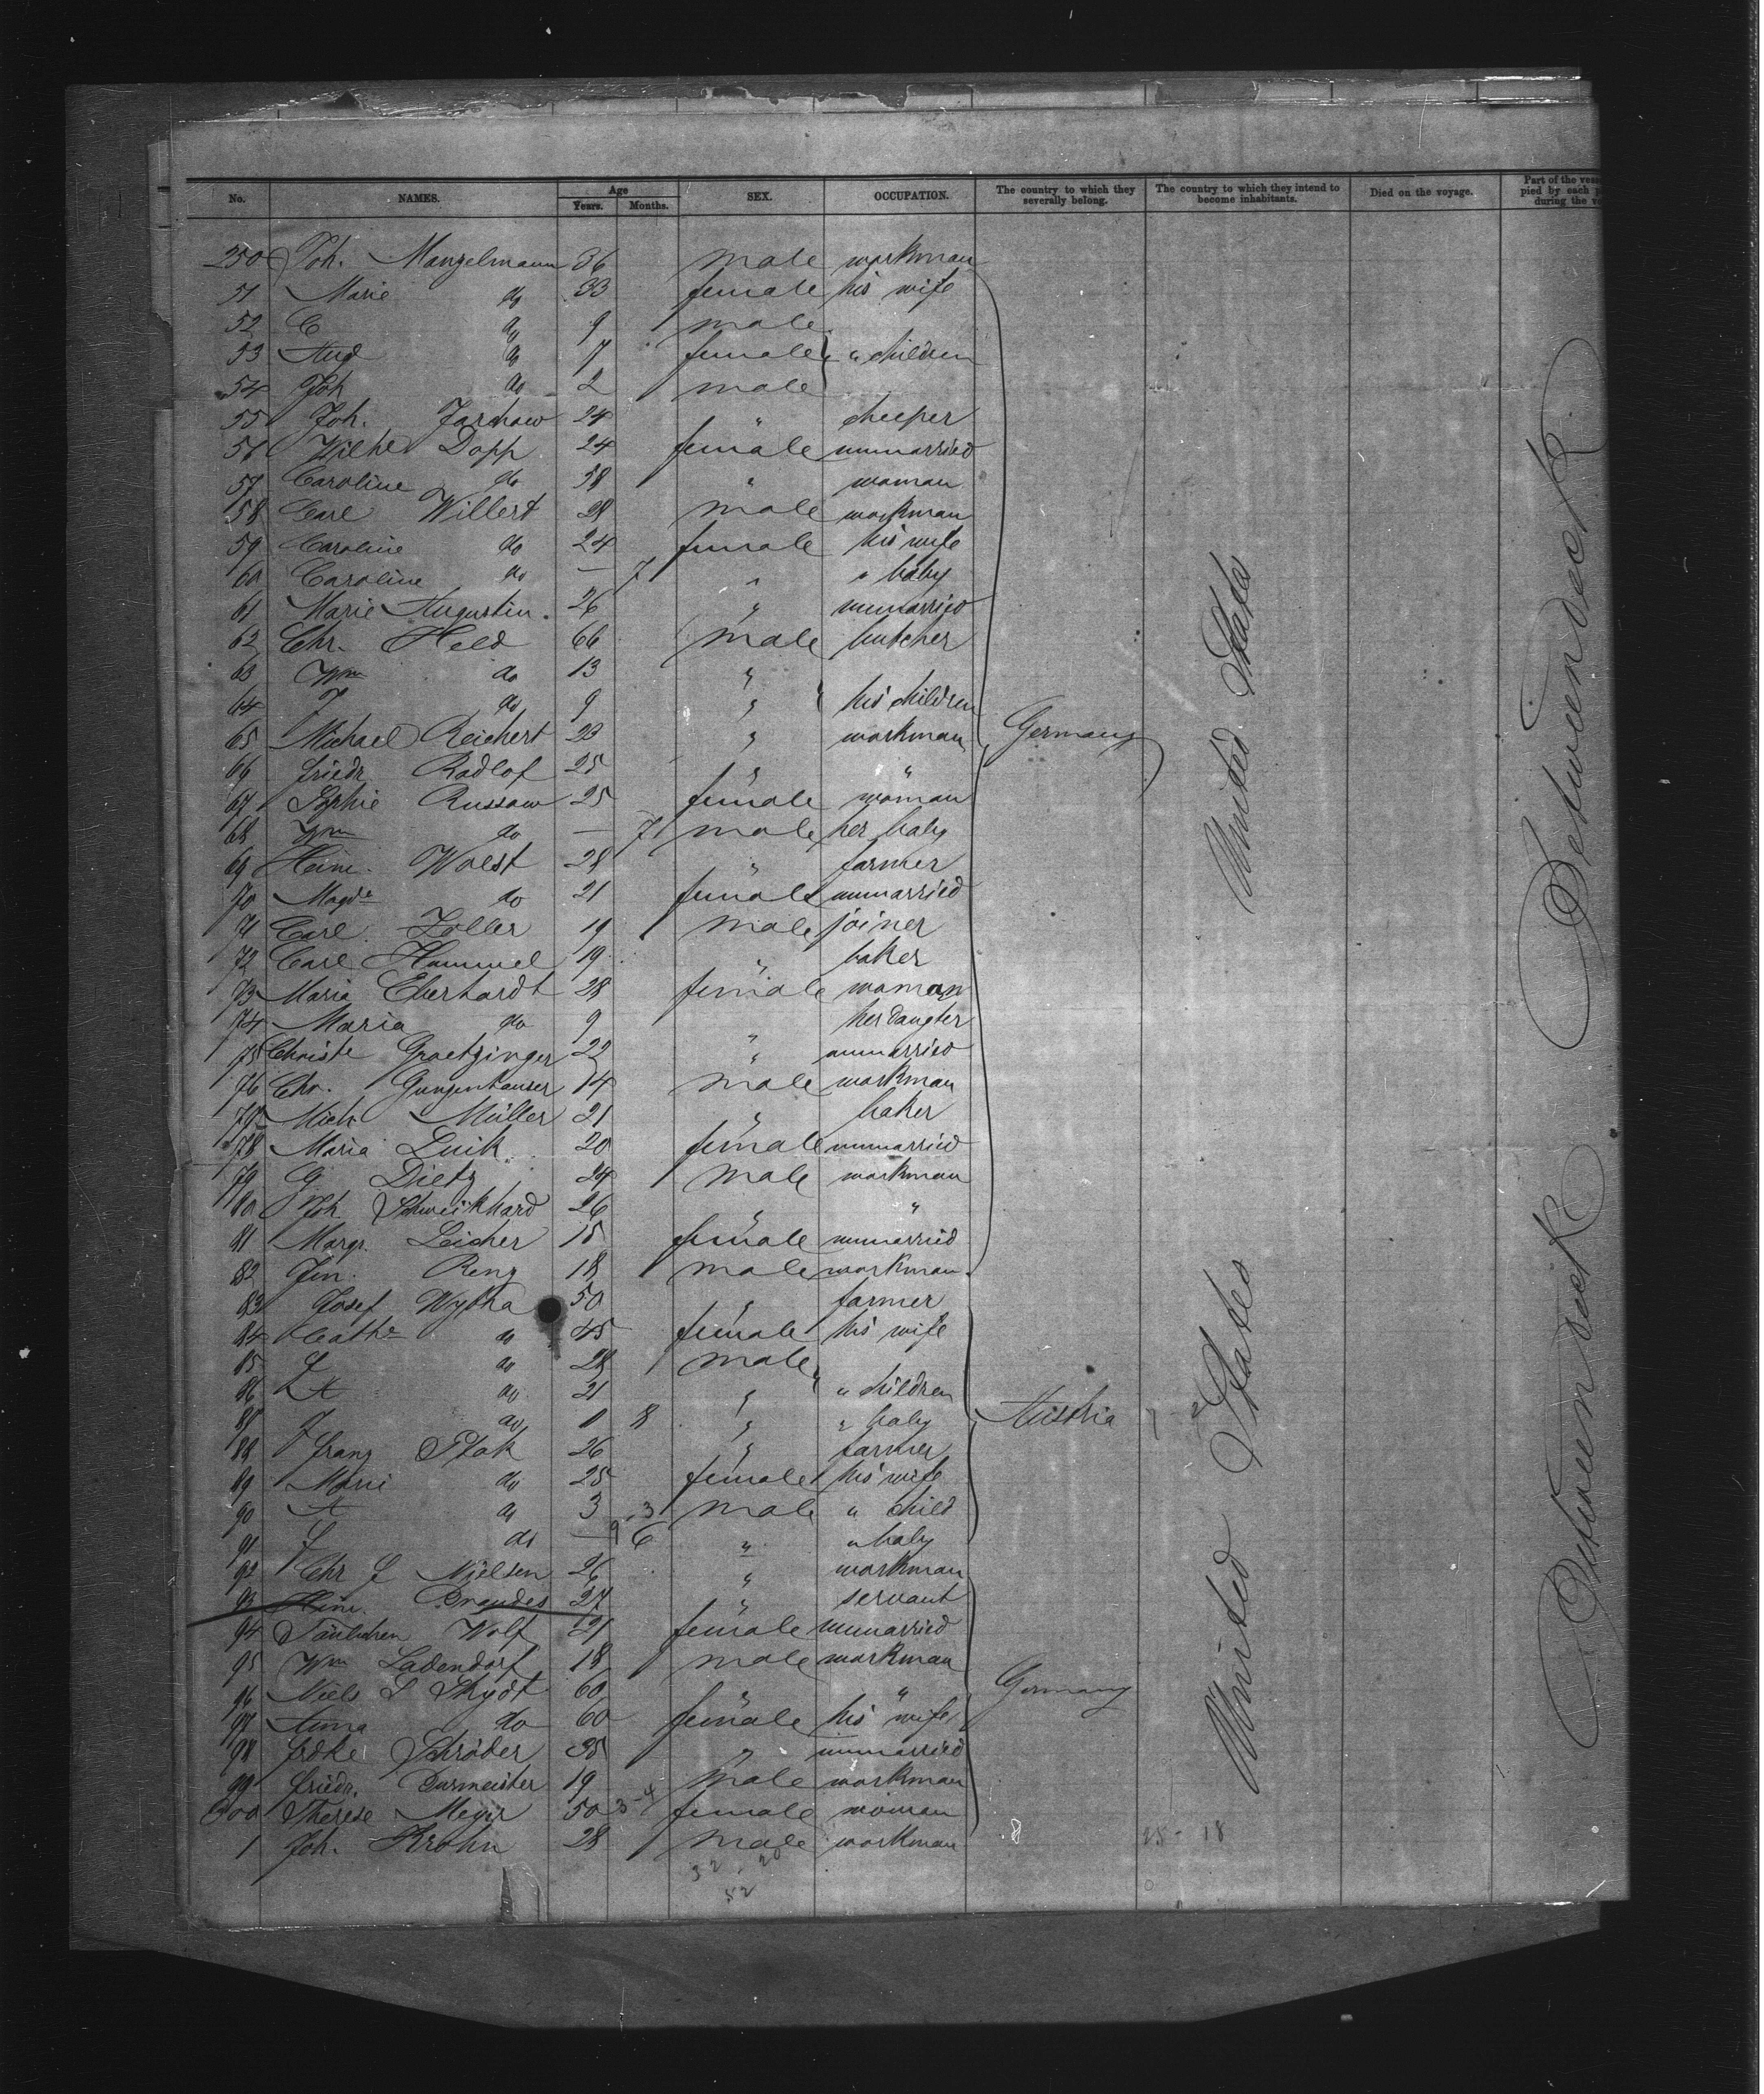 No. NAMES. Age Years. Months. SEX. OCCUPATION. The country to which they severally belong. The country to which they intend to become inhabitants. Died on the voyage. Part of the pied by each during the
250 Joh. Mangelmann 36 male workman
51 Marie do 33 female his wife
52 C do 9 male
53 Aug do 7 female " children
54 Joh do 2 male
55 Joh. Jarchow 24 "
56 Wilhe Dopp 24 female unmarried
57 Caroline do 58 " woman
58 Carl Willert 28 male workman
59 Caroline do 24 female his wife
60 Caroline do — 7 " " baby
61 Marie Augustin. 26 " unmarried
62 Chr. Held 66 male butcher
63 Wm do 13 "
64 J do 9 " his children
65 Michael Reichert 23 " workman Germany
66 Friedr Radlof 25 " "
67 Sophie Russow 25 female woman
68 Wm do — 7 male her baby
69 Heinr. Woest 28 " farmer
70 Magde do 21 female unmarried
71 Carl Zoller 19 male joiner
72 Carl Hummel 19 " baker
73 Maria Eberhardt 28 female woman
74 Maria do 9 " her daugter
75 Christe Graetzinger 22 " unmarried
76 Chr. Gungenhauser 14 male workman
77 Mich. Müller 21 " baker
78 Maria Luik 20 female unmarried
79 G Dietz 24 male workman
80 Joh Schweikhard 26 " "
81 Margr. Leicher 15 female unmarried
82 Renz 18 male workman
83 Josef Wytka 50 " farmer
84 Cathe do 45 female his wife
85 do 28 male
86 A do 21 " " children
87 J do 1 8 " " baby Austria
88 Franz Ptak 26 " farmer
89 Marie do 25 female his wife
90 A do 3 3 male " child
91 J do — 9 6 " " baby
92 Chr Nielsen 26 " workman
93 Heinr. Brandes 27 " servant
94 Wolf 21 female unmarried
95 Wm Ladendorf 18 male workman
96 Niels S Skydt 60 " " Germany
97 Anna do 60 female his wife
98 Frdke Schröder 35 " unmarried
99 Friedr. Burmeister 19 male workman
300 Therese Meyer 50 3-4 female woman
1 Joh. Krohn 28 male workman 8 25-18
32 . 20
52
United States
United States
Betweendeck
Betweendeck